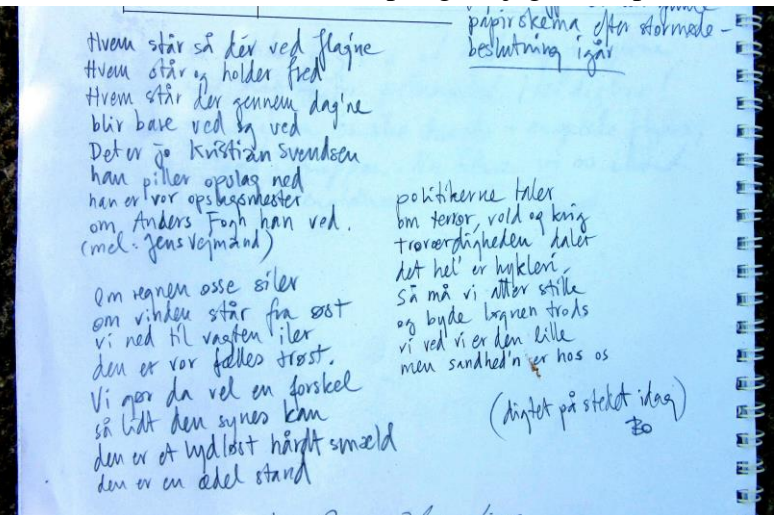 papirskema efter stormøde-
beslutning igår
Hvem står så dér ved flag'ne
Hvem står og holder fred
Hvem står der gennem dag'ne
blir bare ved og ved
Det er jo Kristian Svendsen
han piller opslag ned
han er vor opslagsmester
om Anders Fogh han ved.
(mel: Jens Vejmand)
Om regnen osse siler
om vinden står fra øst
vi ned til vagten iler
den er vor fælles trøst.
Vi gør da vel en forskel
så lidt den synes kan
den er et lydløst hårdt smæld
den er en ædel stand
politikerne taler
om terror, vold og krig
troværdigheden daler
det hel' er hykleri.
Så må vi atter stille
og byde løgnen trods
vi ved vi er den lille
men sandhed'n er hos os
(digtet på stedet idag)
Bo